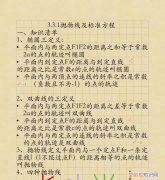 3.3.1抛物线及标准方程
一、知识清单
1、椭圆三定义:
· 平面内与两定点F1F2的距离之和等于常数
2a的点的轨迹叫椭圆
· 平面内到定点F的距离与到定直线
的距离之比是常数e的点的轨迹叫椭圆
· 平面内与两顶点的连线的斜率之积是常数
的点的轨迹
2、双曲线的三定义
· 平面内与两定点F1F2的距离之差等于常数
2a的点的轨迹叫双曲线
· 平面内到定点F的距离与到定直线的距离
之比是常数e的点的轨迹叫双曲线
· 平面内与两定点的连线的斜率之积为常数
的点的轨迹叫双曲线
3、抛物线定义平面内与一个定点F和一条定
直线l(l不经过点F)的距离相等的点的轨迹
叫做抛物线
4、